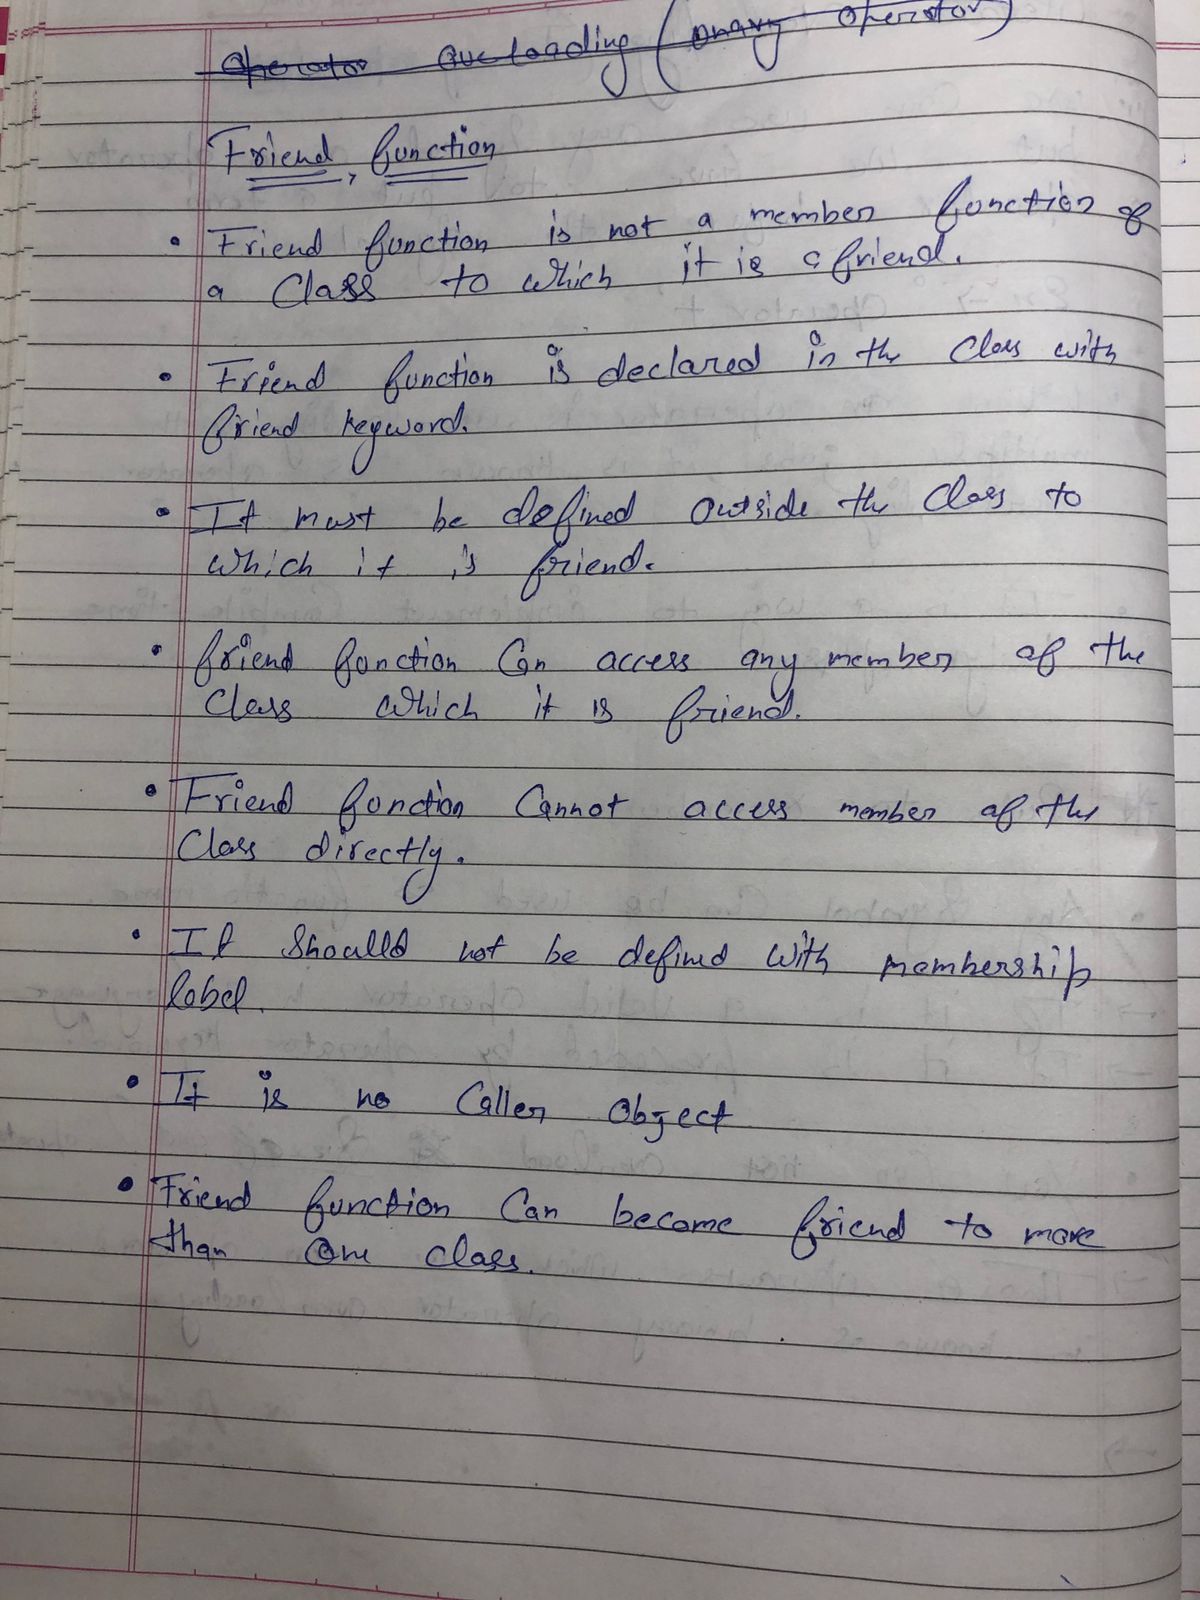 Operator Overloading (Unary Operator)
Friend function
• Friend function is not a member function of
a Class to which it is a friend.
• Friend function is declared in the class with
friend keyword.
• It must be defined outside the class to
which it is friend.
• friend function Can access any member of the
Class which it is friend.
• Friend function Cannot access member of the
Class directly.
• It Shoulld not be defined with membership
label.
• It is no Caller Object
• Friend function Can become friend to more
than One class.